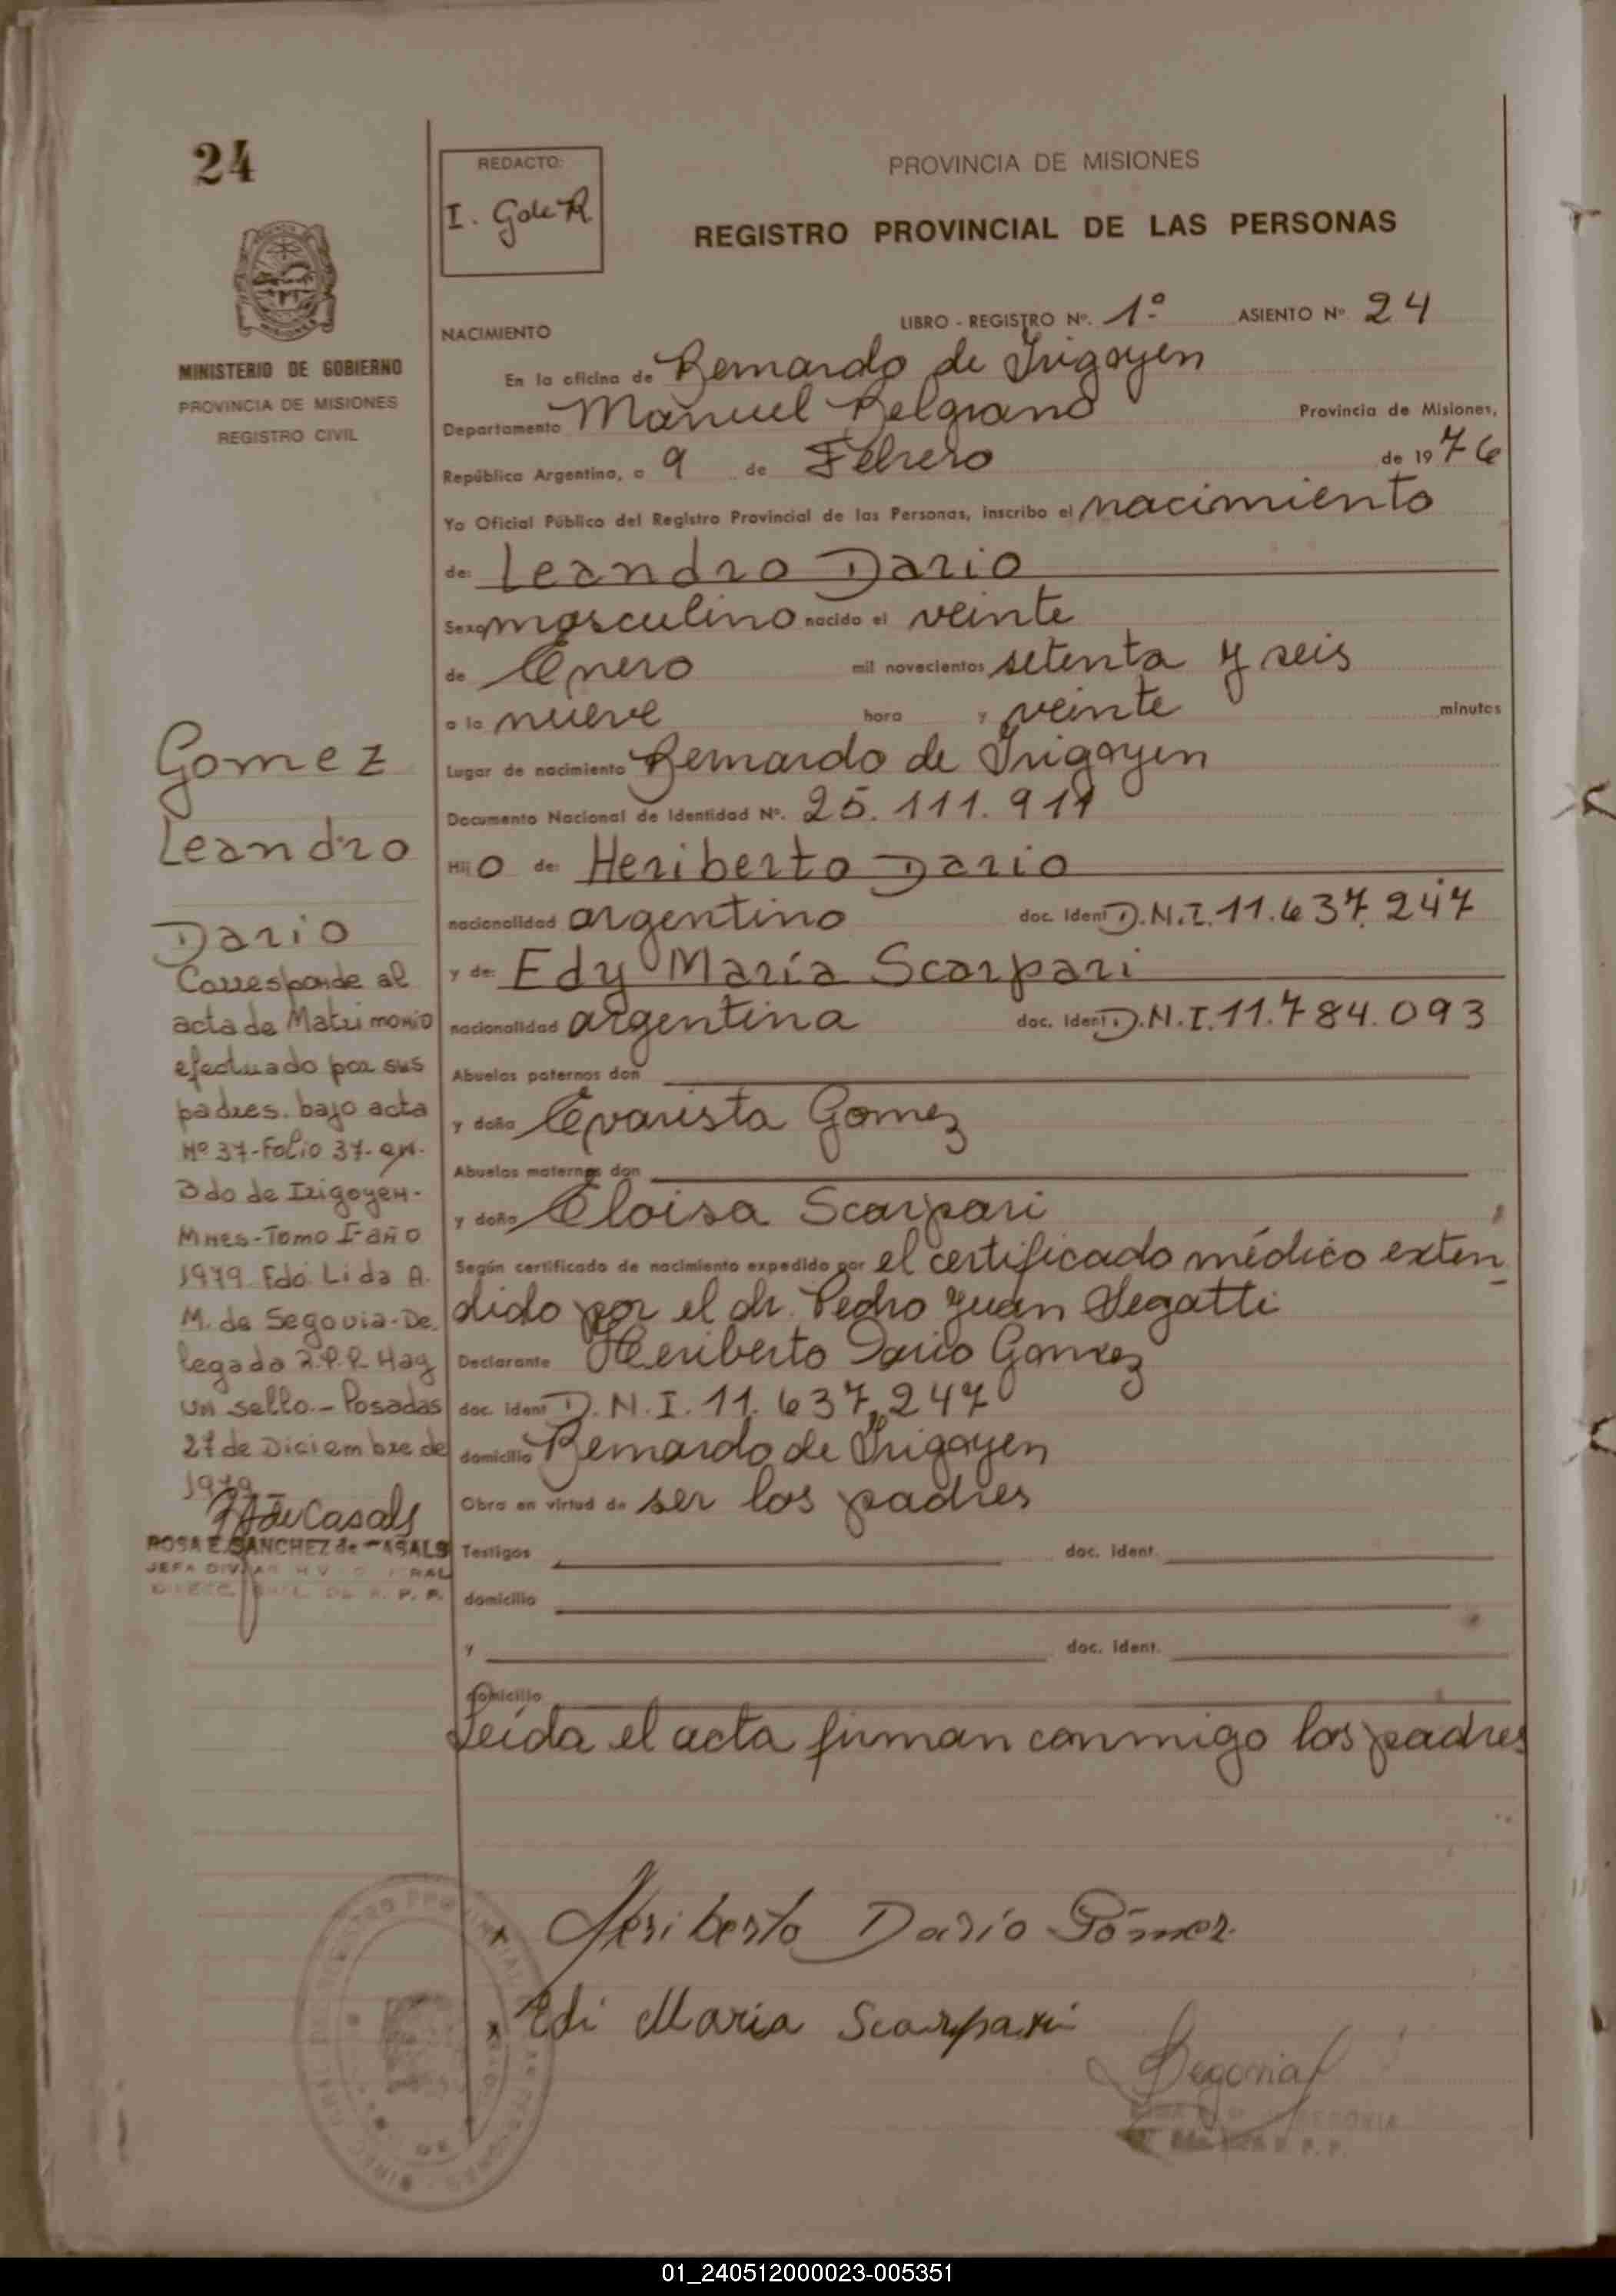 24
REDACTO:
I. G de R
PROVINCIA DE MISIONES
REGISTRO PROVINCIAL DE LAS PERSONAS
MINISTERIO DE GOBIERNO
PROVINCIA DE MISIONES
REGISTRO CIVIL
NACIMIENTO
LIBRO - REGISTRO Nº. 1º ASIENTO Nº 24
En la oficina de Bernardo de Irigoyen
Departamento Manuel Belgrano Provincia de Misiones,
República Argentina, a 9 de Febrero de 1976
Yo Oficial Público del Registro Provincial de las Personas, inscribo el nacimiento
de: Leandro Dario
Sexo masculino nacido el veinte
de Enero mil novecientos setenta y seis
a la nueve hora y veinte minutos
Lugar de nacimiento Bernardo de Irigoyen
Documento Nacional de Identidad Nº. 25.111.911
Hijo de: Heriberto Dario
nacionalidad argentino doc. Ident D.N.I. 11.637.247
y de: Edy María Scarpari
nacionalidad argentina doc. Ident D.N.I. 11.784.093
Abuelos paternos don
y doña Evarista Gomez
Abuelos maternos don
y doña Eloisa Scarpari
Según certificado de nacimiento expedido por el certificado médico exten
dido por el dr. Pedro Juan Segatti
Declarante Heriberto Dario Gomez
doc. ident D.N.I. 11.637.247
domicilio Bernardo de Irigoyen
Obra en virtud de ser los padres
Testigos doc. Ident.
domicilio
y doc. Ident.
domicilio
Leída el acta firman conmigo los padres
Gomez
Leandro
Dario
Corresponde al
acta de Matrimonio
efectuado por sus
padres. bajo acta
Nº 37-Folio 37- en.
Bdo de Irigoyen-
Mnes-Tomo I-año
1979 Fdo. Lida A.
M. de Segovia-De
legada R.P.P. Hay
un sello.- Posadas
27 de Diciembre de
1979
de Casals
ROSA E. SANCHEZ de CASALS
Heriberto Dario Gómez
Edi Maria Scarpari
Segovia
01_240512000023-005351